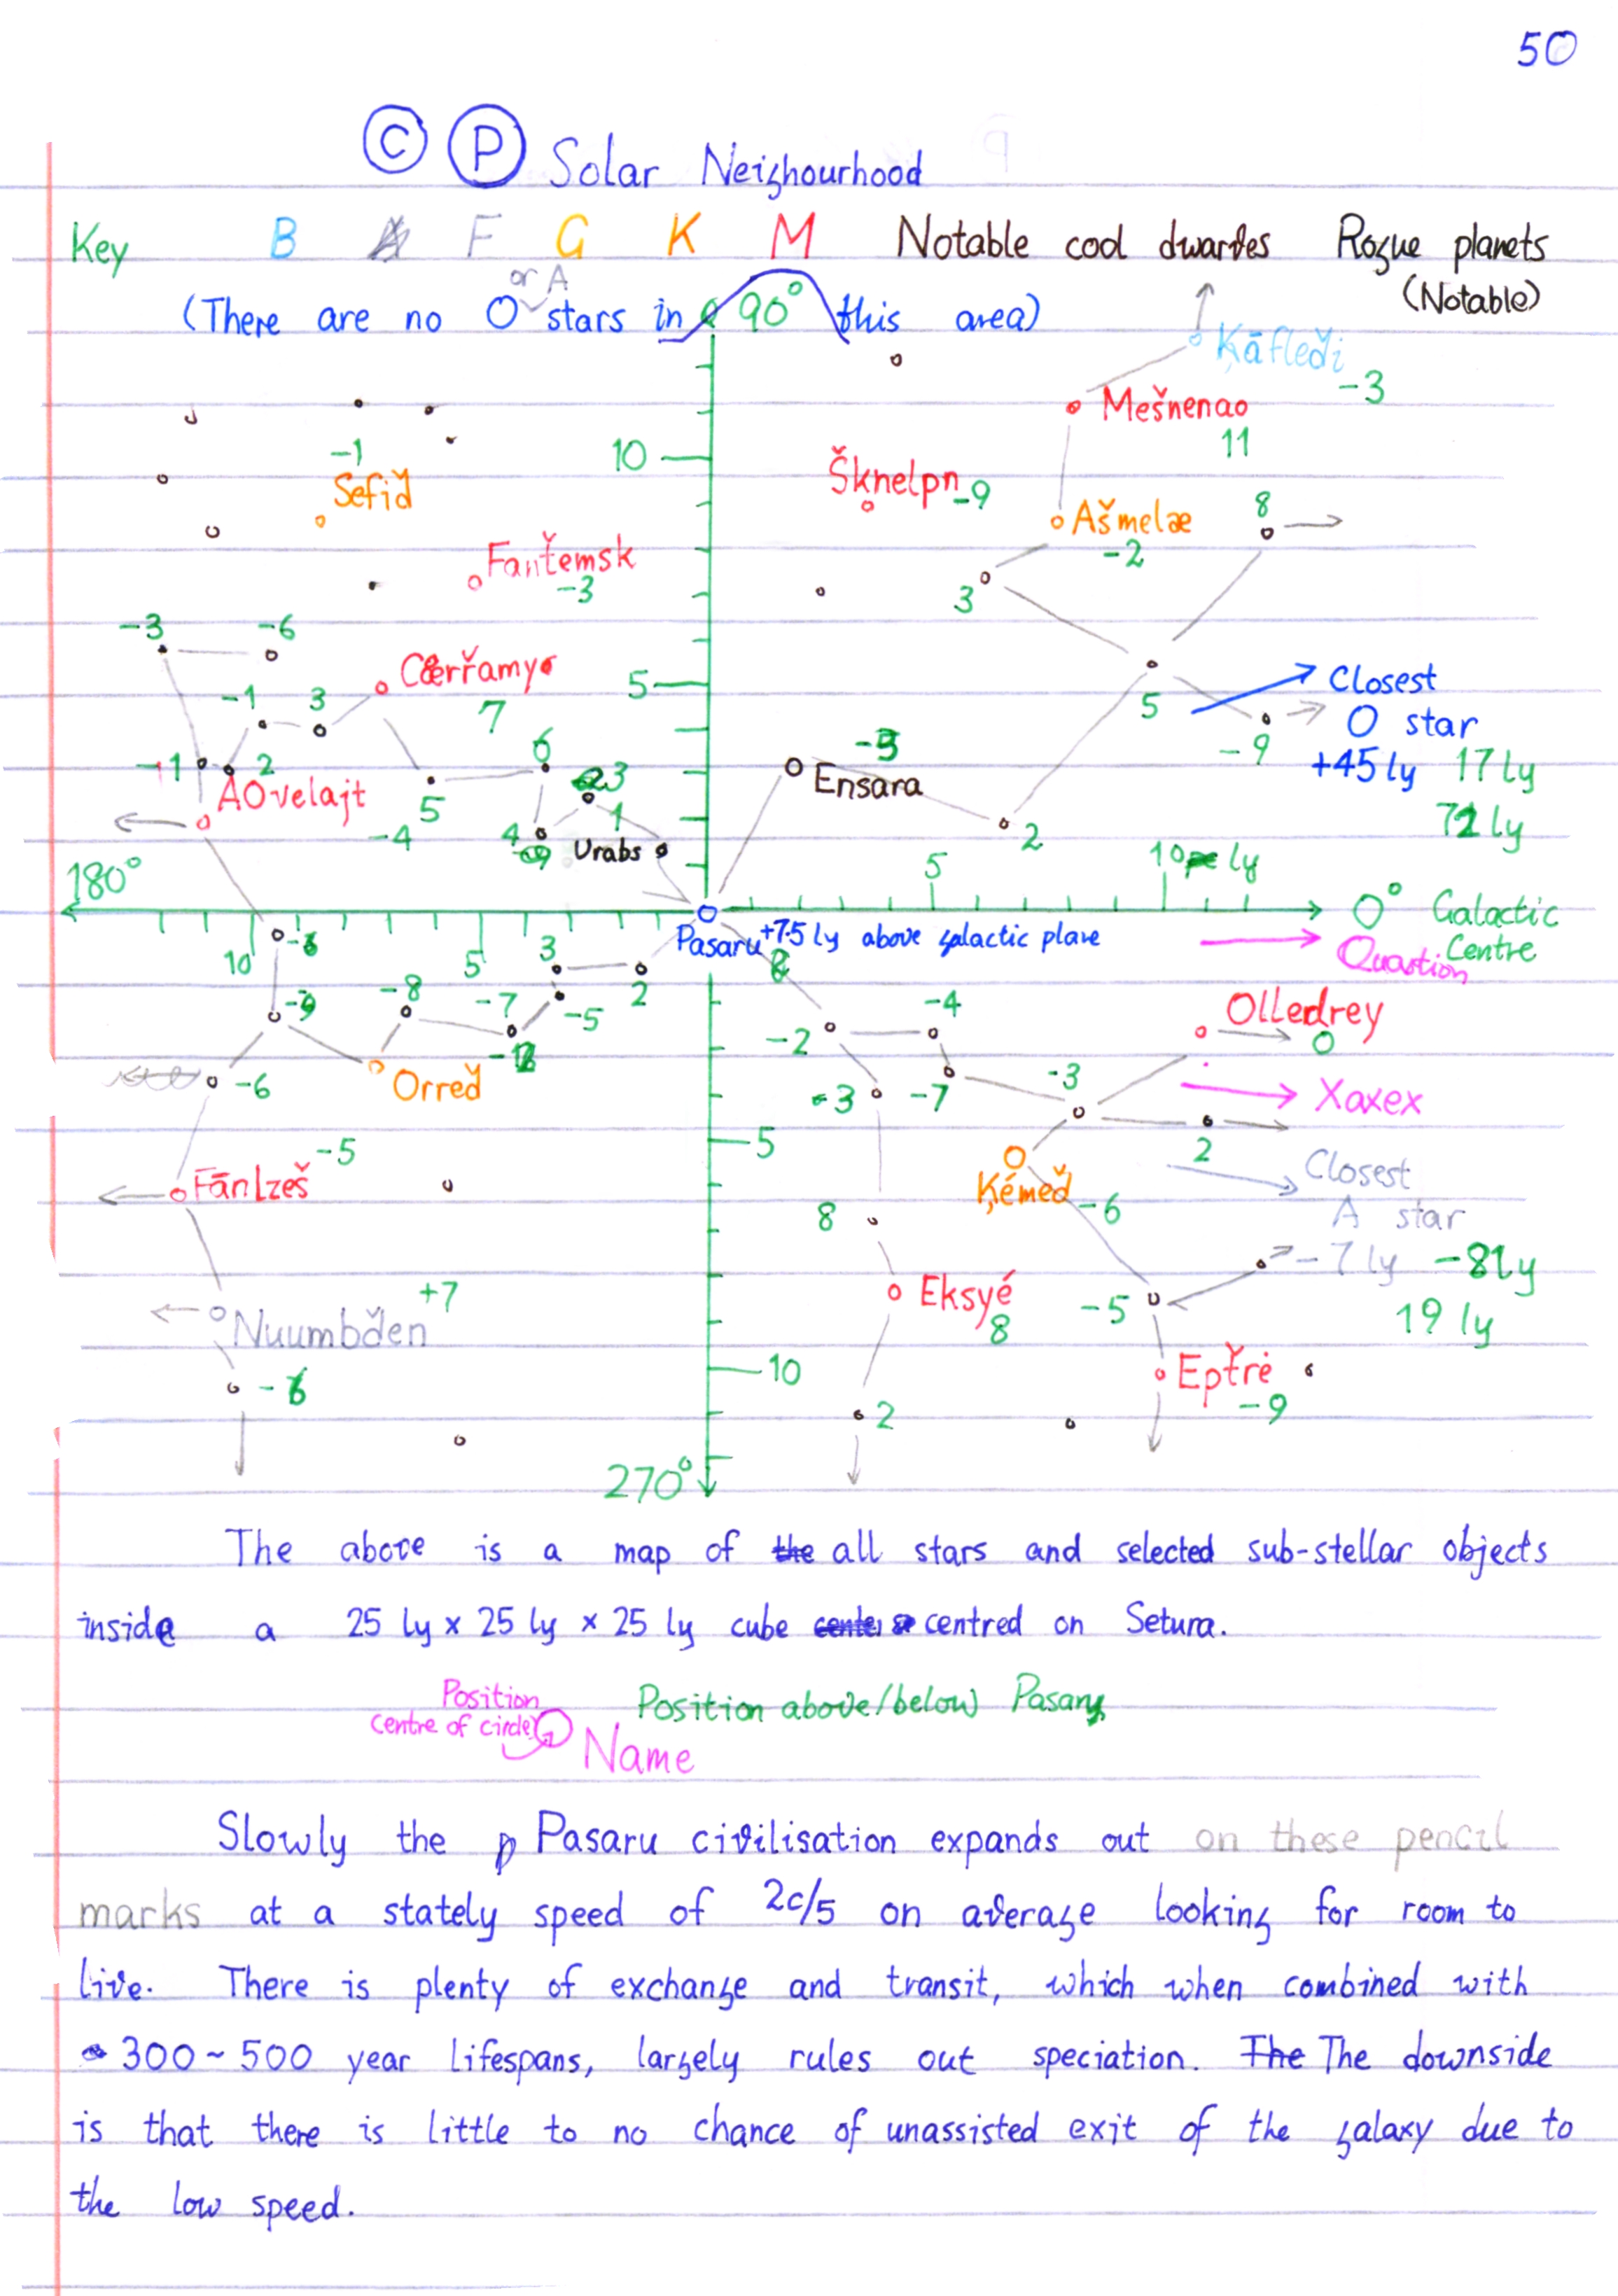 50
C P Solar Neighourhood
Key B A F G K M Notable cool dwarfes Rogue planets
(Notable)
or A
(There are no O stars in this area)
90°
Ķāfleďi
-3
Mešnenao
11
-1
Sefiď
10
Šķnelpn -9
Ašmelæ
-2
8
Fanťemsk
-3
3
-3 -6
Cærřamyo
7
5
-1 3
5
Closest
O star
+45 ly 17 ly
72 ly
-9
-1 2
AOvelajt
-4
5
6
3
1
4
Urabs
Ensara
2
180°
5
10 ly
0° Galactic
Centre
Quastion
Pasaru +7.5 ly above galactic plane
10
5
3
2
-8
-7
-5
-9
-6
Orreď
-2
-4
-3
-7
-3
Olledrey
0
Xaxex
2
5
Ķémeď
-6
Closest
A star
-7 ly -8ly
19 ly
-5
Fānlzeš
-5
8
Eksyé
8
+7
Nuumbďen
10
Epťrė
-9
2
270°
The above is a map of the all stars and selected sub-stellar objects
inside a 25 ly x 25 ly x 25 ly cube centred on Setura.
Position
Centre of circle
Name
Position above/below Pasaru
Slowly the p Pasaru civilisation expands out on these pencil
marks at a stately speed of 2c/5 on average looking for room to
live. There is plenty of exchange and transit, which when combined with
300~500 year lifespans, largely rules out speciation. The The downside
is that there is little to no chance of unassisted exit of the galaxy due to
the low speed.